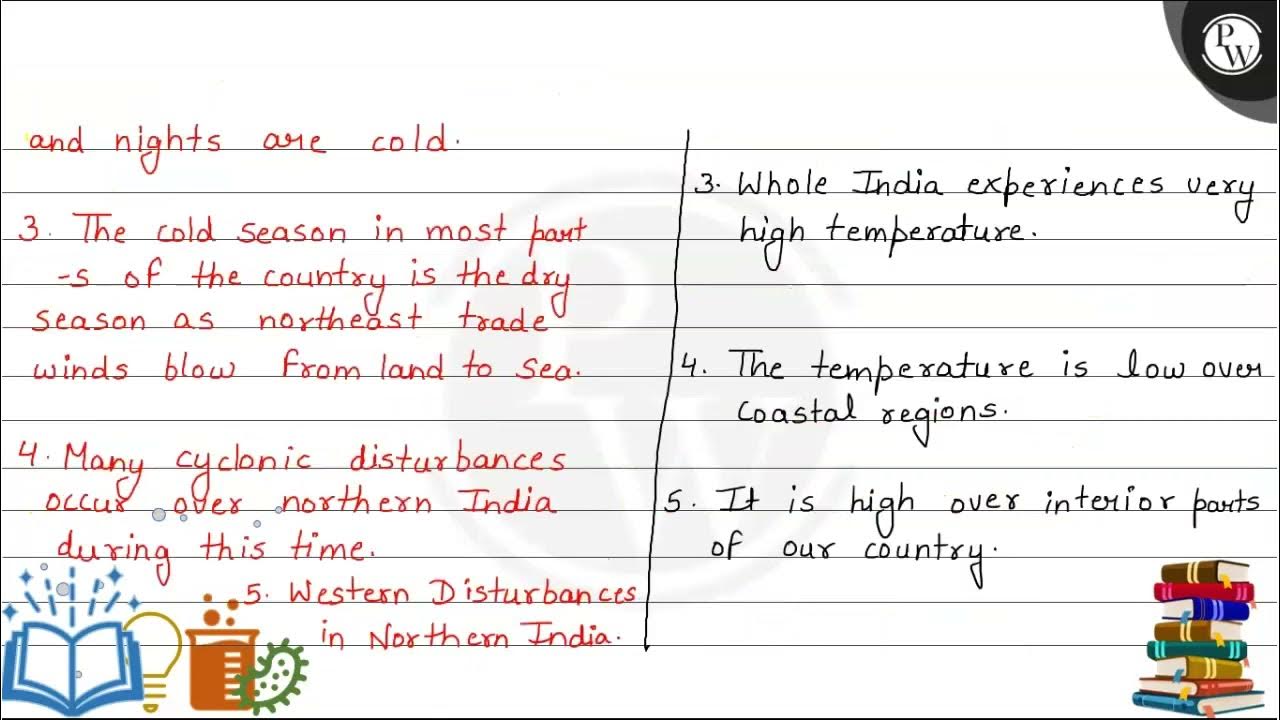 and nights are cold.
3. The cold season in most part
-s of the country is the dry
season as northeast trade
winds blow from land to sea.
4. Many cyclonic disturbances
occur over northern India
during this time.
5. Western Disturbances
in Northern India.
3. Whole India experiences very
high temperature.
4. The temperature is low over
coastal regions.
5. It is high over interior parts
of our country.
PW
PW